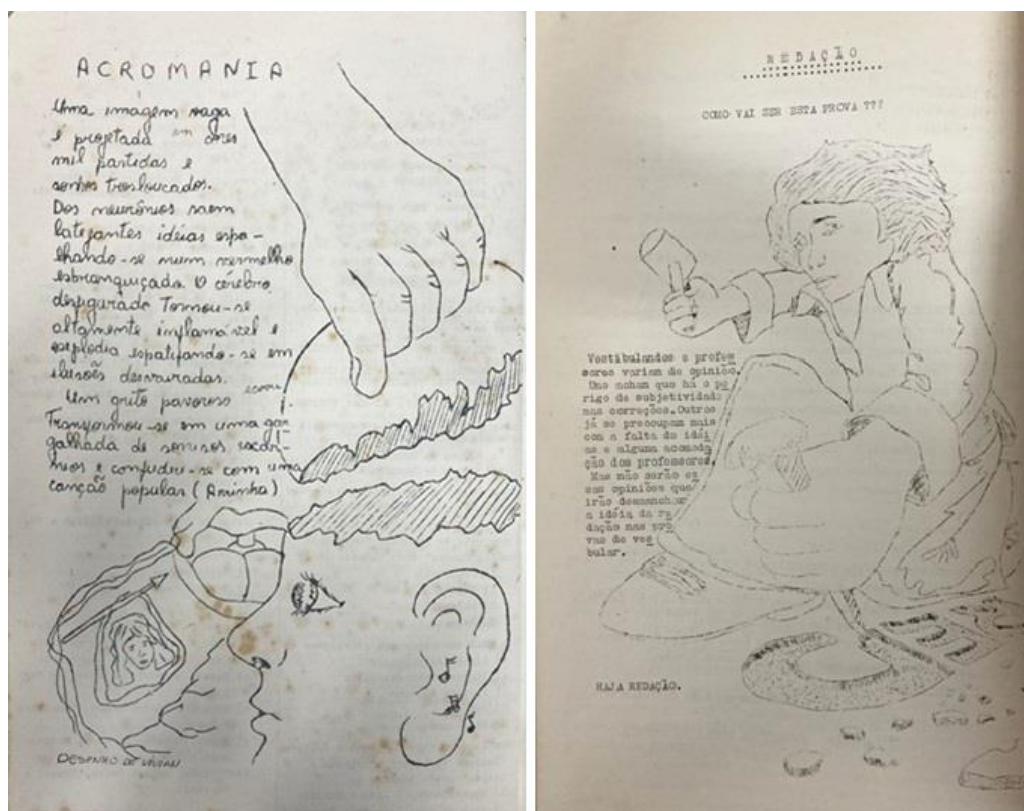 ACROMANIA
Uma imagem vaga
é projetada em
mil partidas e
sonhos tresloucados.
Dos neurônios saem
latejantes idéias espa-
lhando-se num vermelho
esbranquiçado. O cérebro
desfigurado Tornou-se
altamente inflamável e
explodiu espatifando-se em
ilusões desvairadas.
Um grito pavoroso
Transformou-se em uma gar
galhada de sorrisos
e confudiu-se com uma
canção popular (Aninha)
DESENHO DE VIVIAN
REDAÇÃO
COMO VAI SER ESTA PROVA ???
Vestibulandos e profes
sores variam de opinião.
Uns acham que há o pe
rigo de subjetividade
nas correções. Outros
já se preocupam mais
com a falta de idéi
as e alguma acomoda
ção dos professores.
Mas não serão es
sas opiniões que
irão desmanchar
a idéia da re
dação nas pro
vas do ves
bular.
HAJA REDAÇÃO.